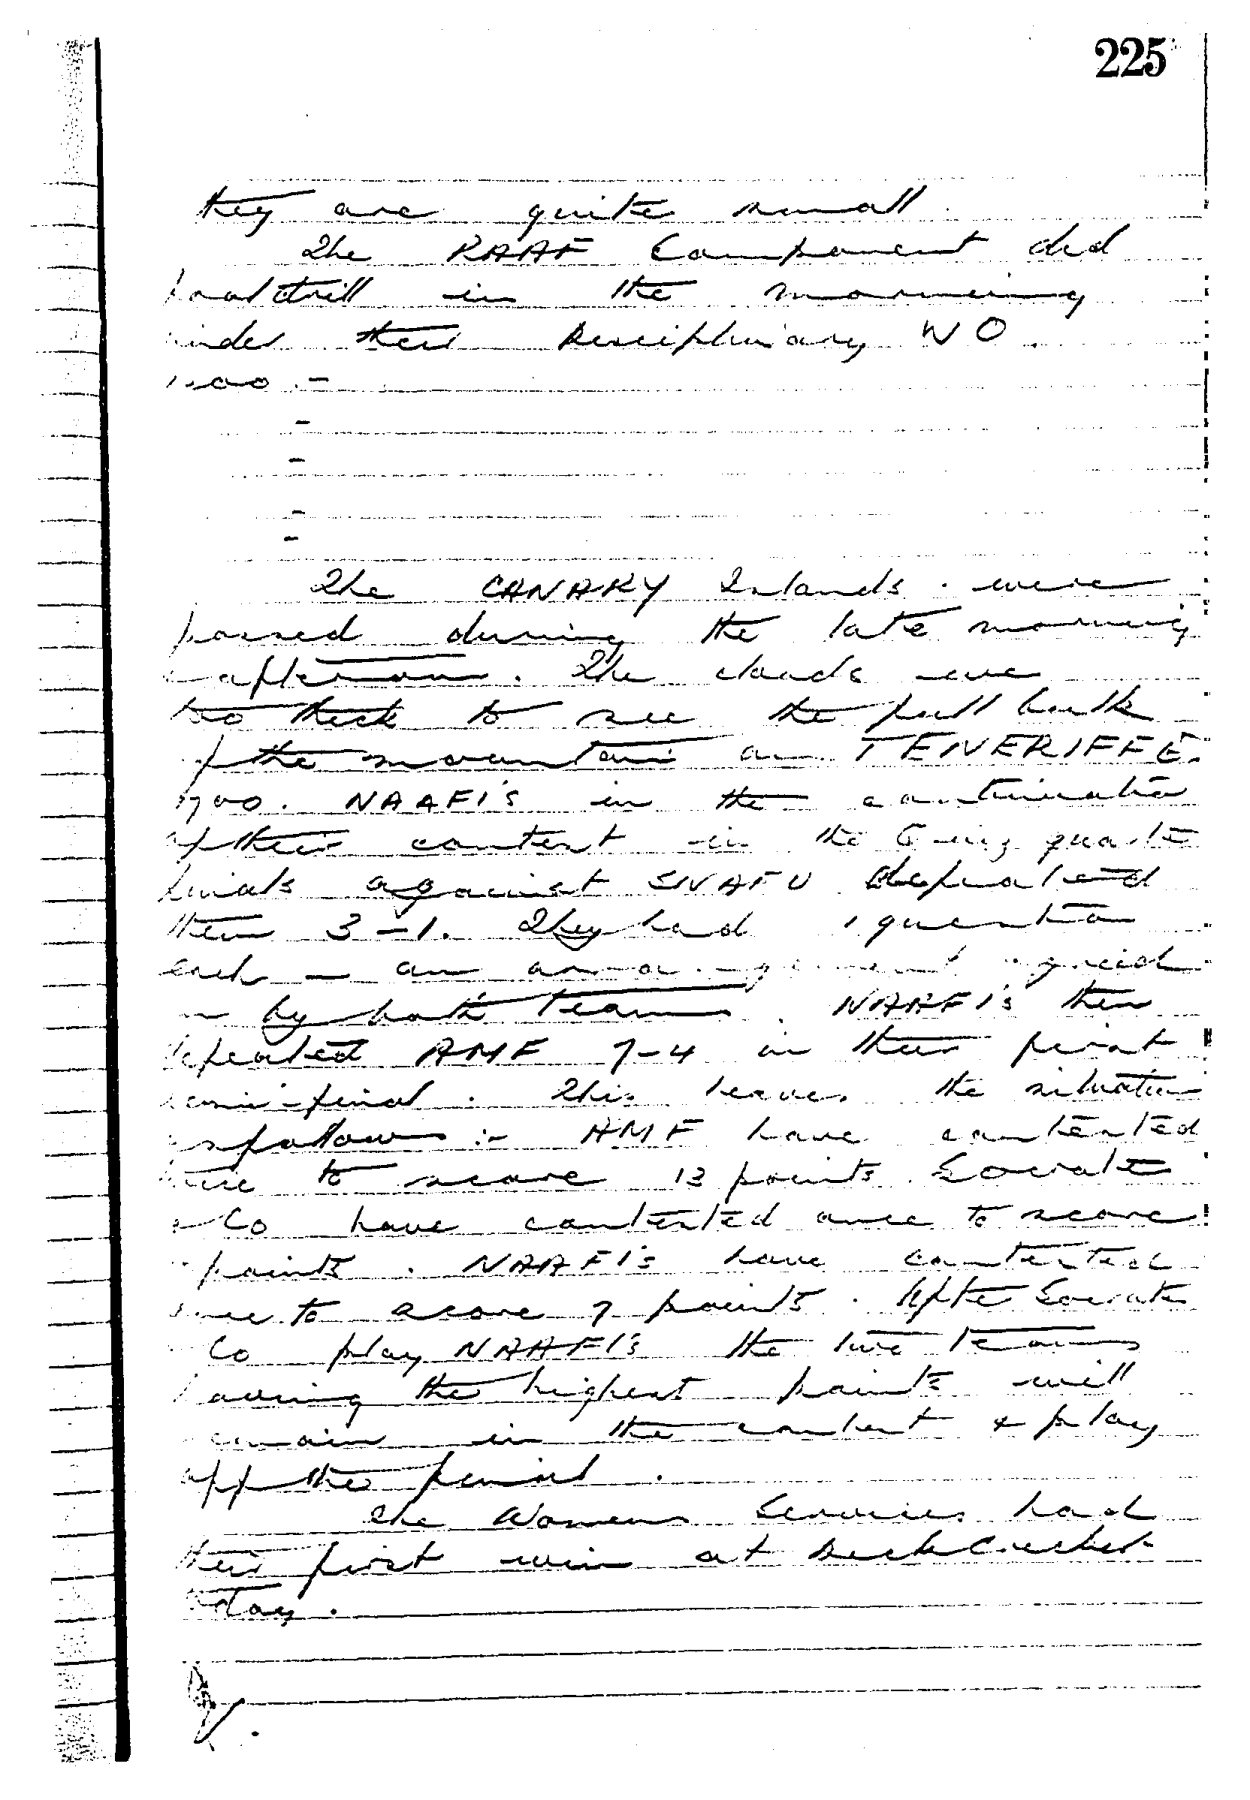 225
they are quite small.
The RAAF Component did
footdrill in the morning
under their Disciplinary WO.
:-
-
-
-
-
The CANARY Islands were
passed during the late morning
afternoon. The clouds were
too thick to see the full bulk
of the mountain on TENERIFFE.
1700. NAAFI's in the continuation
of their contest in the quarter
finals against SNAFU defeated
them 3-1. They had 1 question
each - an arrangement agreed
on by both teams. NAAFI's then
defeated AMF 7-4 in their first
semi-final. This leaves the situation
as follows :- AMF have contested
twice to score 13 points. Socrates
& Co have contested once to score
points. NAAFI's have contested
once to score 7 points. After Socrates
Co play NAAFI's the two teams
having the highest points will
remain in the contest & play
off the final.
The Womens Services had
their first win at Deck Cricket
today.